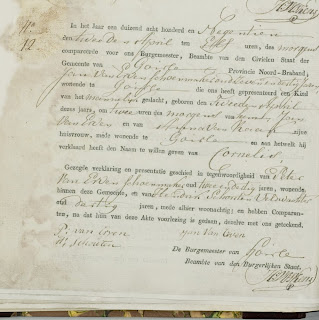 No.
12.
In het Jaar een duizend acht honderd en Negentien
den twee de April ten Elf uren, des morgens
compareerde voor ons Burgemeester, Beambte van den Civielen Staat der
Gemeente van Goirle Provincie Noord-Braband,
Jan Van Erven schoenmaker oud
wonende te Goirle die ons heeft gepresenteerd een Kind
van het mannelijk geslacht, geboren den Tweede April
dezes jaars, om Twee uren des morgens van hem Jan
Van Erven en van Van
huisvrouw, mede wonende te Goirle en aan hetwelk hij
verklaard heeft den Naam te willen geven van Cornelis,
Gezegde verklaring en presentatie geschied in tegenwoordigheid van Peter
Van Erven schoenmaker oud jaren, wonende
binnen deze Gemeente, en van Schouten
oud dertig jaren, mede alhier woonachtig; en hebben Comparan-
ten, na dat hun van deze Akte voorlezing is gedaan, dezelve met ons geteekend.
P. van Erven Jan Van Erven
Schouten
De Burgemeester van Goirle
Beambte van den Burgerlijken Staat.